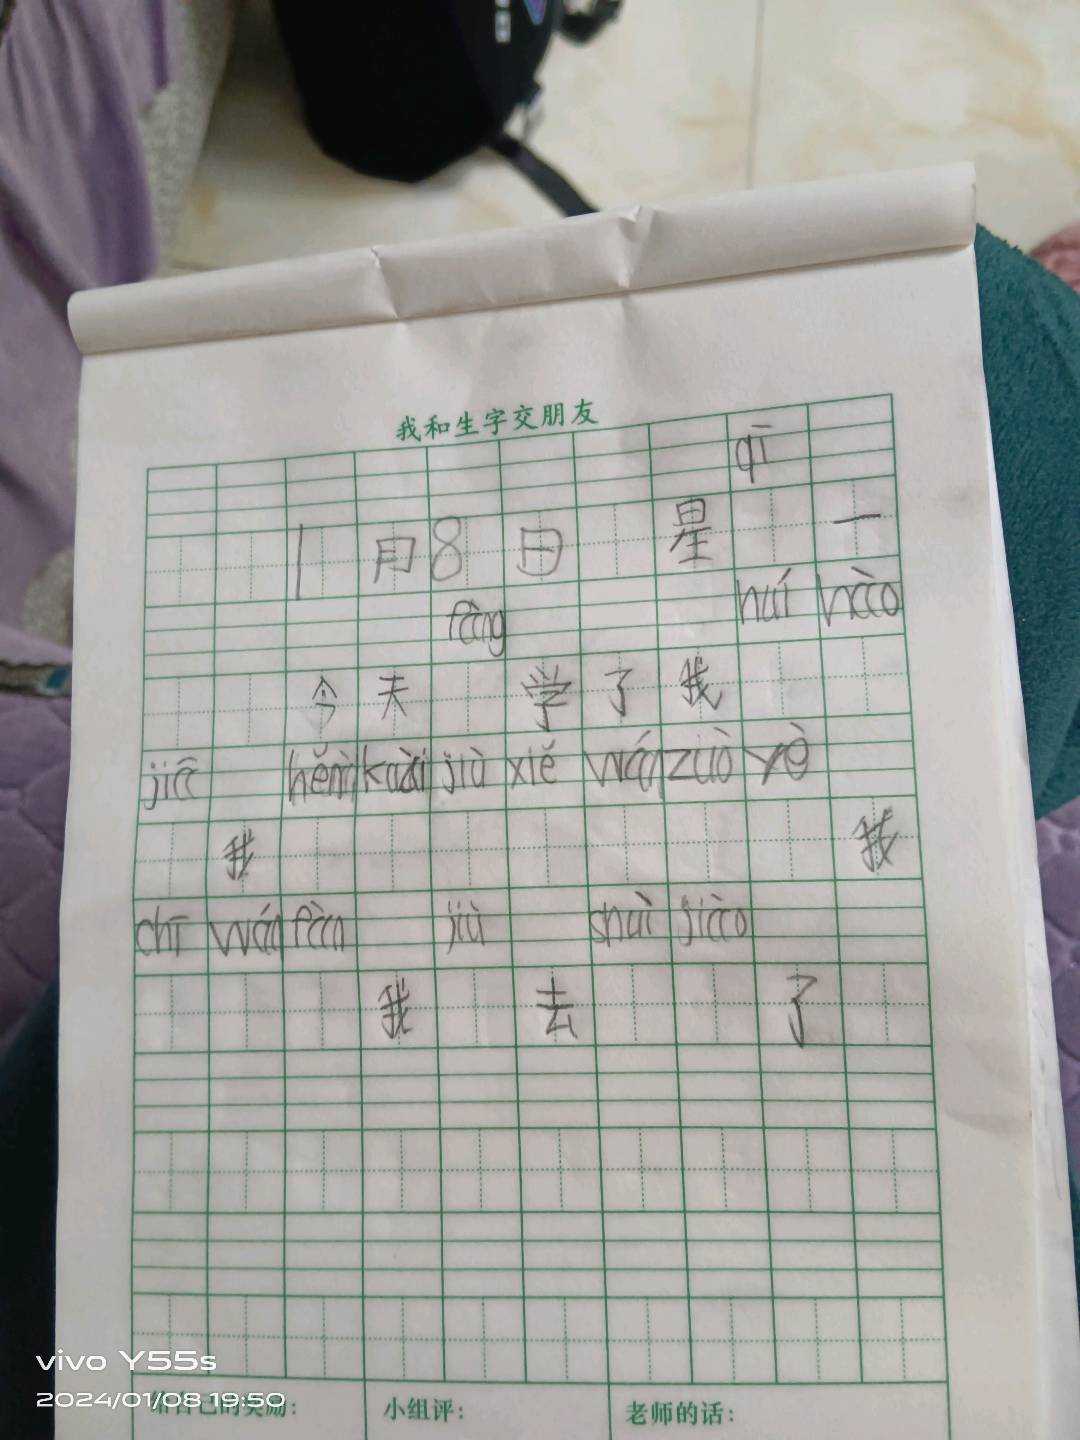 我和生字交朋友
qī
1月8日 星 一
fàng huí hào
今天 学了我
jiā hěn kuài jiù xiě wán zuò yè
我 我
chī wán fàn jiù shuì jiào
我 去 了
给自己的奖励: 小组评: 老师的话:
vivo Y55s
2024/01/08 19:50